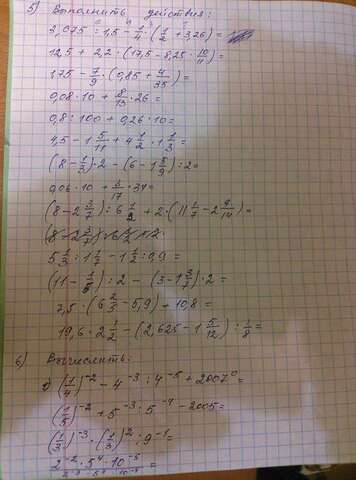 5) Выполнить действия:
2,075 : 1,5 - 1/4 · (1/2 + 3,26) =
12,5 + 2,2 · (17,5 - 8,25 · 10/11) =
1,75 - 7/9 · (0,85 + 4/35) =
0,08 · 10 + 8/13 · 26 =
0,8 : 100 + 0,26 · 10 =
4,5 - 1 5/11 + 4 1/2 · 1 1/3 =
(8 - 1/3) · 2 - (6 - 1 5/9) : 2 =
0,06 · 10 + 3/17 · 34 =
(8 - 2 3/7) : 6 1/2 + 2 · (11 1/7 - 2 9/14) =
5 1/3 : 1 1/7 - 1 1/2 : 0,9 =
(11 - 1/5) : 2 - (3 - 1 3/7) · 2 =
7,5 · (6 2/3 - 5,9) + 10,8 =
19,6 · 2 1/2 - (2,625 - 1 5/12) : 1/8 =
6) Вычислить:
(1/4)⁻² - 4⁻³ : 4⁻⁵ + 2007⁰ =
(1/5)⁻² + 5⁻³ : 5⁻⁴ - 2005 =
(1/3)⁻³ · (1/3)² : 9⁻¹ =
2⁻² · 5⁴ · 10⁻⁵ =